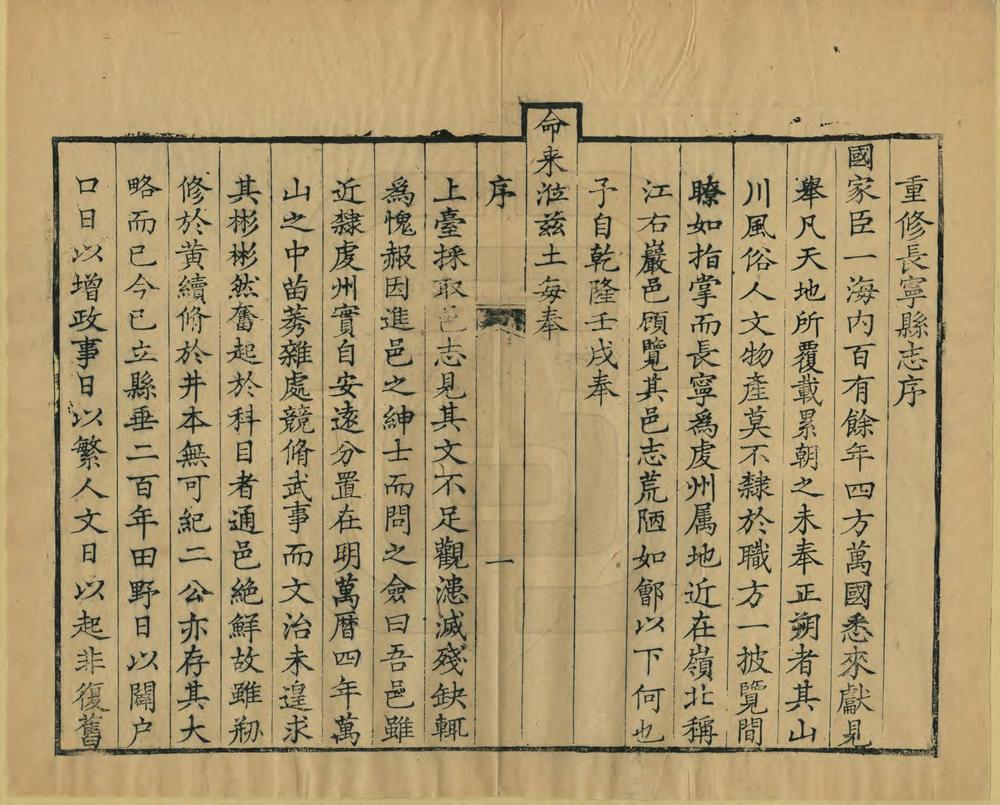 重修長寧縣志序
國家臣一海内百有餘年四方萬國悉來獻見
舉凡天地所覆載累朝之未奉正朔者其山
川風俗人文物產莫不隸於職方一披覽間
瞭如指掌而長寧爲虔州属地近在嶺北稱
江右巖邑頋覽其邑志荒陋如鄶以下何也
子自乾隆壬戌奉
命来涖兹土每奉
序
一
上臺採取邑志見其文不足觀漶滅殘缺輒
爲愧赧因進邑之紳士而問之僉曰吾邑雖
近隸虔州實自安遠分置在明萬曆四年萬
山之中苗莠雜處競脩武事而文治未遑求
其彬彬然奮起於科目者通邑絶鮮故雖刱
修於黄續脩於井本無可紀二公亦存其大
略而已今已立縣垂二百年田野日以闢户
口日以增政事日以繁人文日以起非復舊